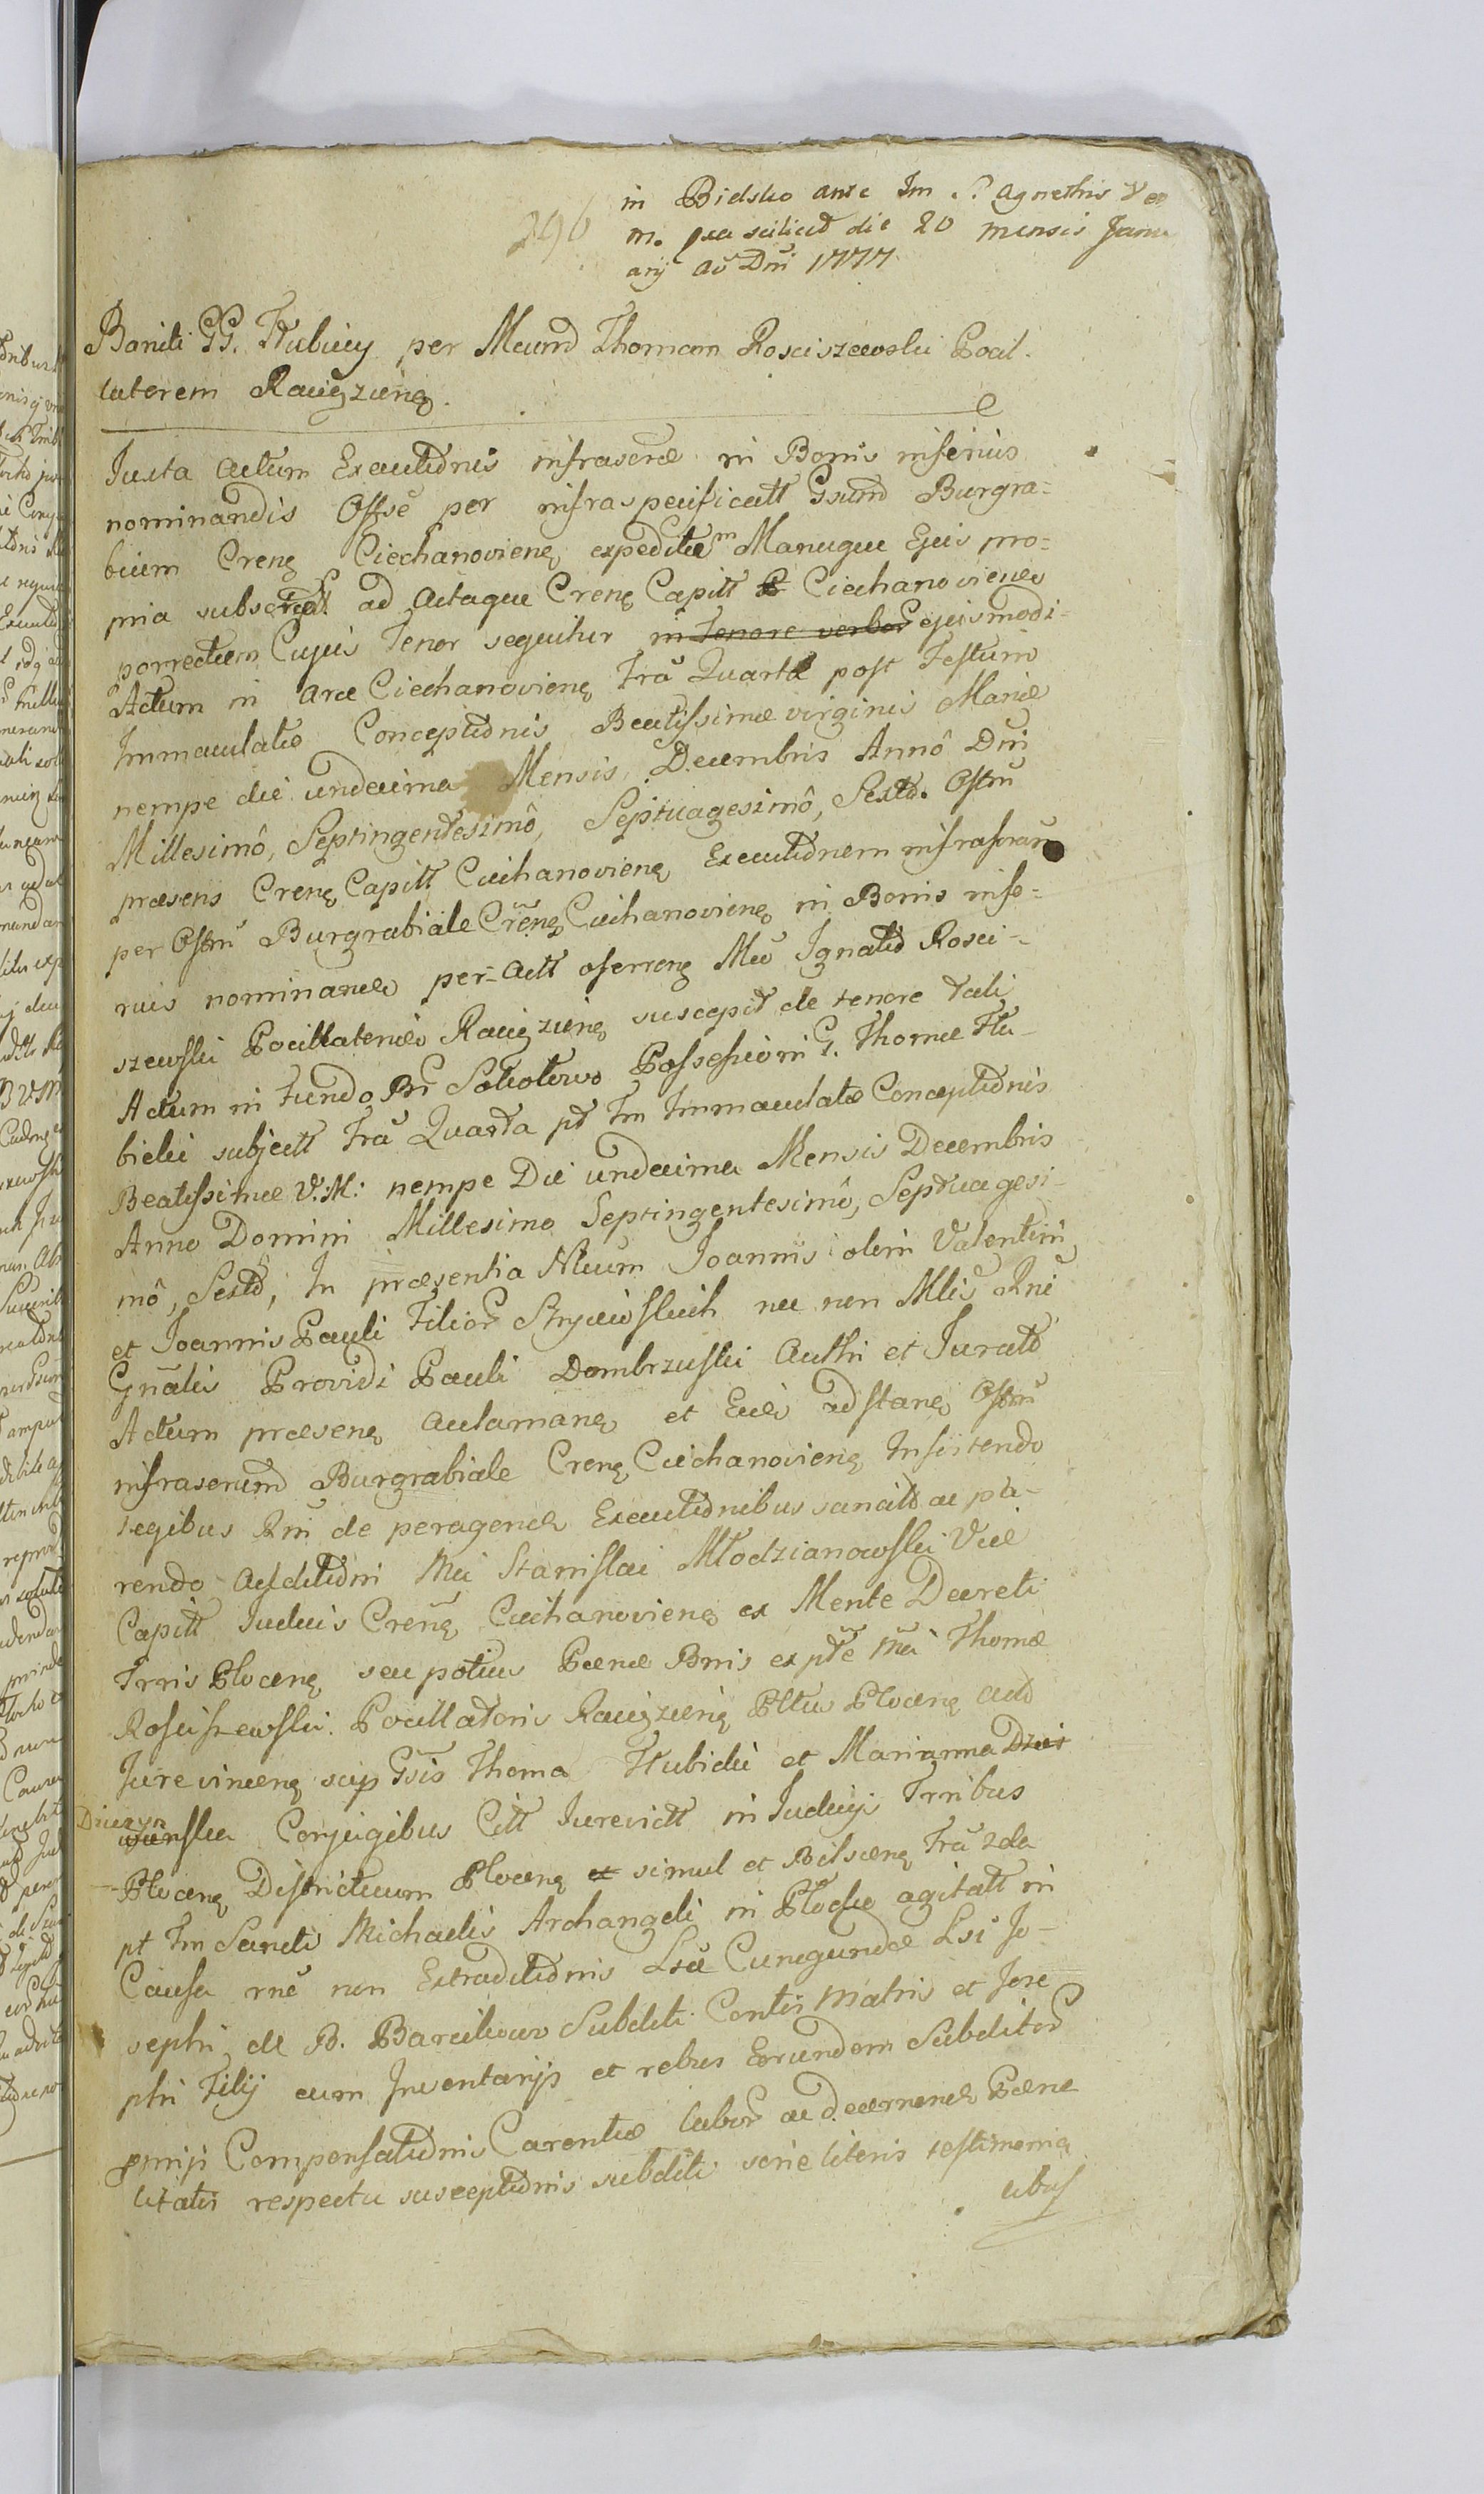 in Bielsko ante Fm S. Agnethis V et
M. pra scilicet die 20 mensis Janu
arij Aō Dni 1777
296
Baniti GG. Hubiccy per Mcumd Thomam Rosciszewski Pocil-
latorem Raciąz̄ieñ.
Juxta Actum Executōnis infrascrae in Bonis inferius
nominandis Offse per infraspecificatt Gsumd Burgra-
bium Cren̄ Ciechanovien̄ expeditae m Manuque Ejus pro-
pria subscript ad Actaque Cren̄ Capitt Ciechanovien̄
porrectum Cujus Tenor sequitur in Tenore verbor Ejusmodi
Actum in Arce Ciechanovien̄ Frā Quarta post Festum
Immaculatae Conceptōnis Beatissimae virginis Mariae
nempe die undecima Mensis Decembris Annô Dni
Millesimô, Septingentesimô, Septuagesimô, Sextô. Offm̄
praesens Cren̄ Capitt Ciechanovien̄ Executōnem infrascrā
per Offm̄ Burgrabiale Cren̄ Ciechanovien̄ in Bonis infe-
rius nominan per Actt offeren̄ Mcō Ignatō Rosci-
szewski Pocillatori Raciąz̄ien̄ suscepit de tenore tali
Actum in Fundo Br Sokołowo Possessioni G. Thomae Hu-
bicki subjectt Frā Quarta pt Fm Immaculatae Conceptōnis
Beatissimae V. M: nempe Die undecima Mensis Decembris
Anno Domini Millesimo Septingentesimô, Septuagesi-
mô, Sextō, In praesentia Nlium Joannis olim Valentini
et Joannis Pauli Filior Stryiewskich nec non Mlis Rni
Gn̄alis Providi Pauli Dombrzuski Authi et Juratō
Actum praesens Aclaman̄ et Eid adstan̄ Offm̄
infrascrumd Burgrabiale Cren̄ Ciechanovien̄ Insistendo
Legibus Rni de peragend Executōnibus sancitō ac pa-
rendo Adscitōni Mci Stanislai Młodzianowski Vice
Capitt Judicis Cren̄ Ciechanovien̄ ex Mente Decreti
Trris Plocen̄ seu potius Paenae Bnis ex pte Mci Thomae
Rosciszewski Pocillatoris Raciąz̄ien̄ Pltus Plocen̄ act
Jurevincen̄ sup Gsis Thoma Hubicki et Marianna Dzier
Dzierzyn
wenska Conjugibus Citt Jurevictt in Judicijs Trribus
Plocen̄ Districtuum Plocen̄ et simul et Bilscen̄ Frā 2da
pt Fm Sancti Michaelis Archangeli in Płocko agitatt in
Causa rne non Extraditōnis Lsae Cunegundae Lsi Jo-
sephi de B. Barcikowo Subditi Contis Matris et Jose
phi Filij cum Inventarijs et rebus Eorundem Subditor
pmijs Compensatōnis Carentiae labor ac decernend Paena
litatis respectu susceptōnis subditi serie literis testimonia
libus